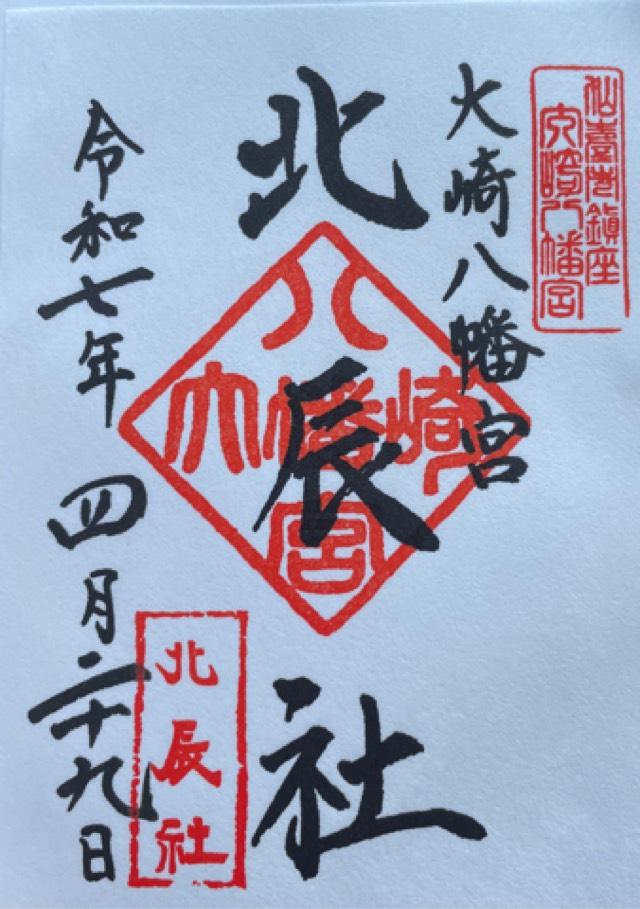 仙臺总鎮座
大崎八幡宮
大崎八幡宮
北辰社
八
大幡崎
宮
北辰社
令和七年四月二十九日